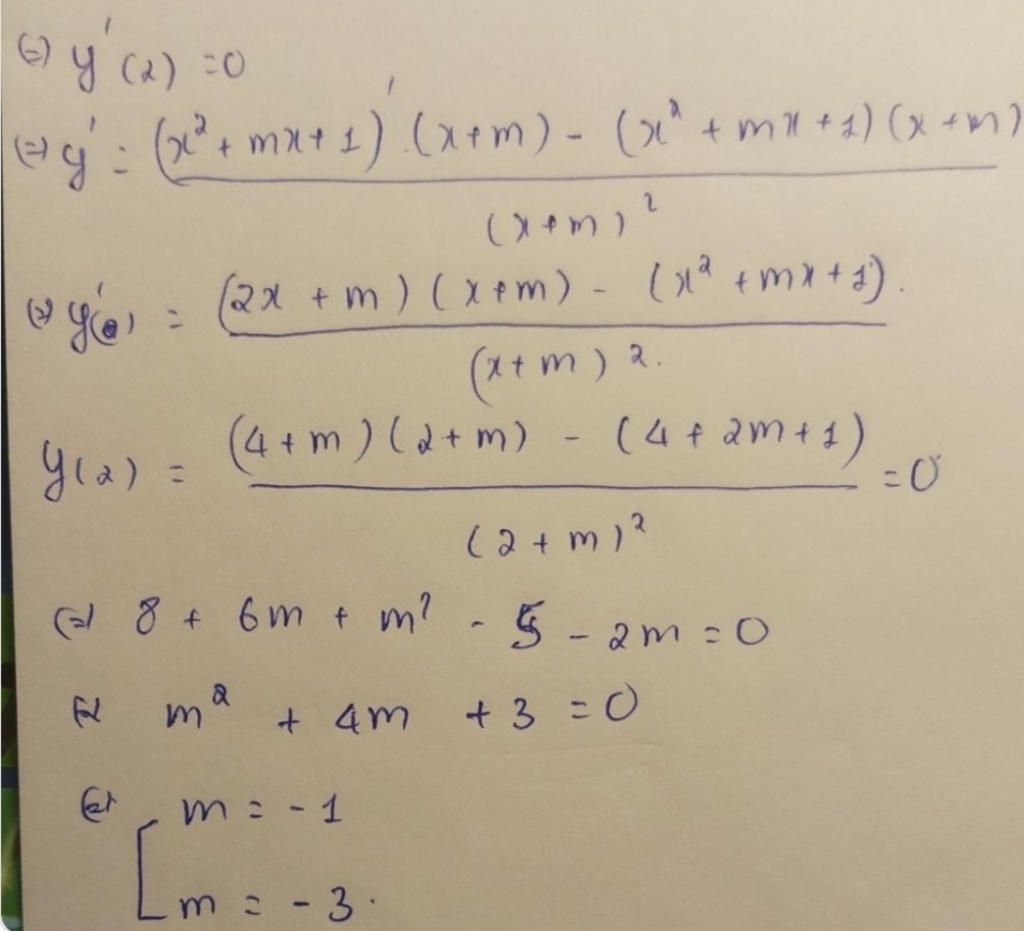 (=) y'(2) =0
(=) y' = (x² + mx + 1)'.(x+m) - (x² + mx + 1)(x + m) / (x+m)²
(=) y'(2) = (2x + m)(x+m) - (x² + mx + 1). / (x+m)².
y(2) = (4+m)(2+m) - (4 + 2m + 1) / (2+m)² =0
(=) 8 + 6m + m² - 5 - 2m = 0
(=) m² + 4m + 3 = 0
(=) [ m = -1
m = -3.